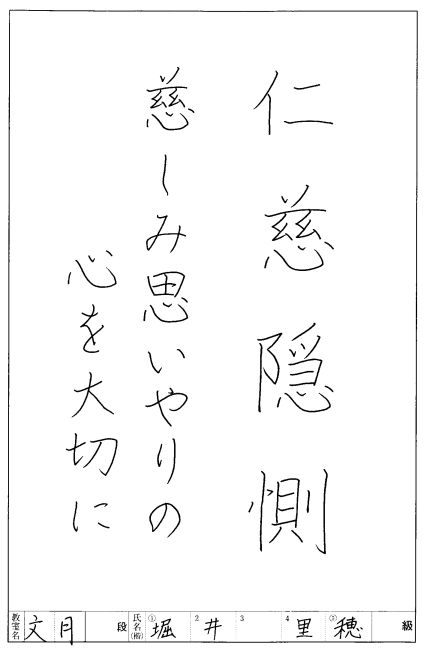 仁慈隠惻
慈しみ思いやりの
心を大切に
教室名 文月 段 氏名(楷) ①堀 2井 3 4里 ⑤穂 級